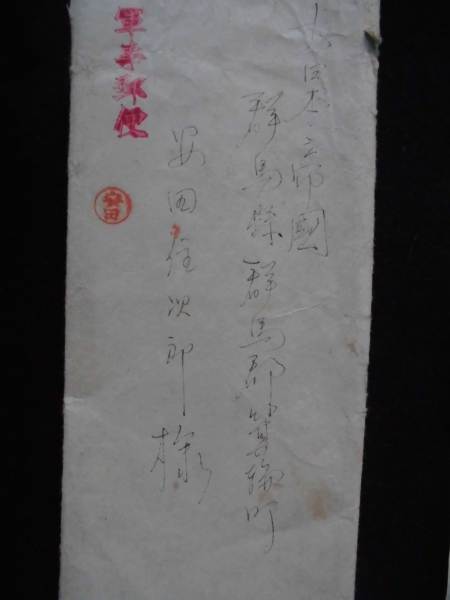 大日本帝國
群馬縣群馬郡箕輪町
安田住次郎様
軍事郵便
安田